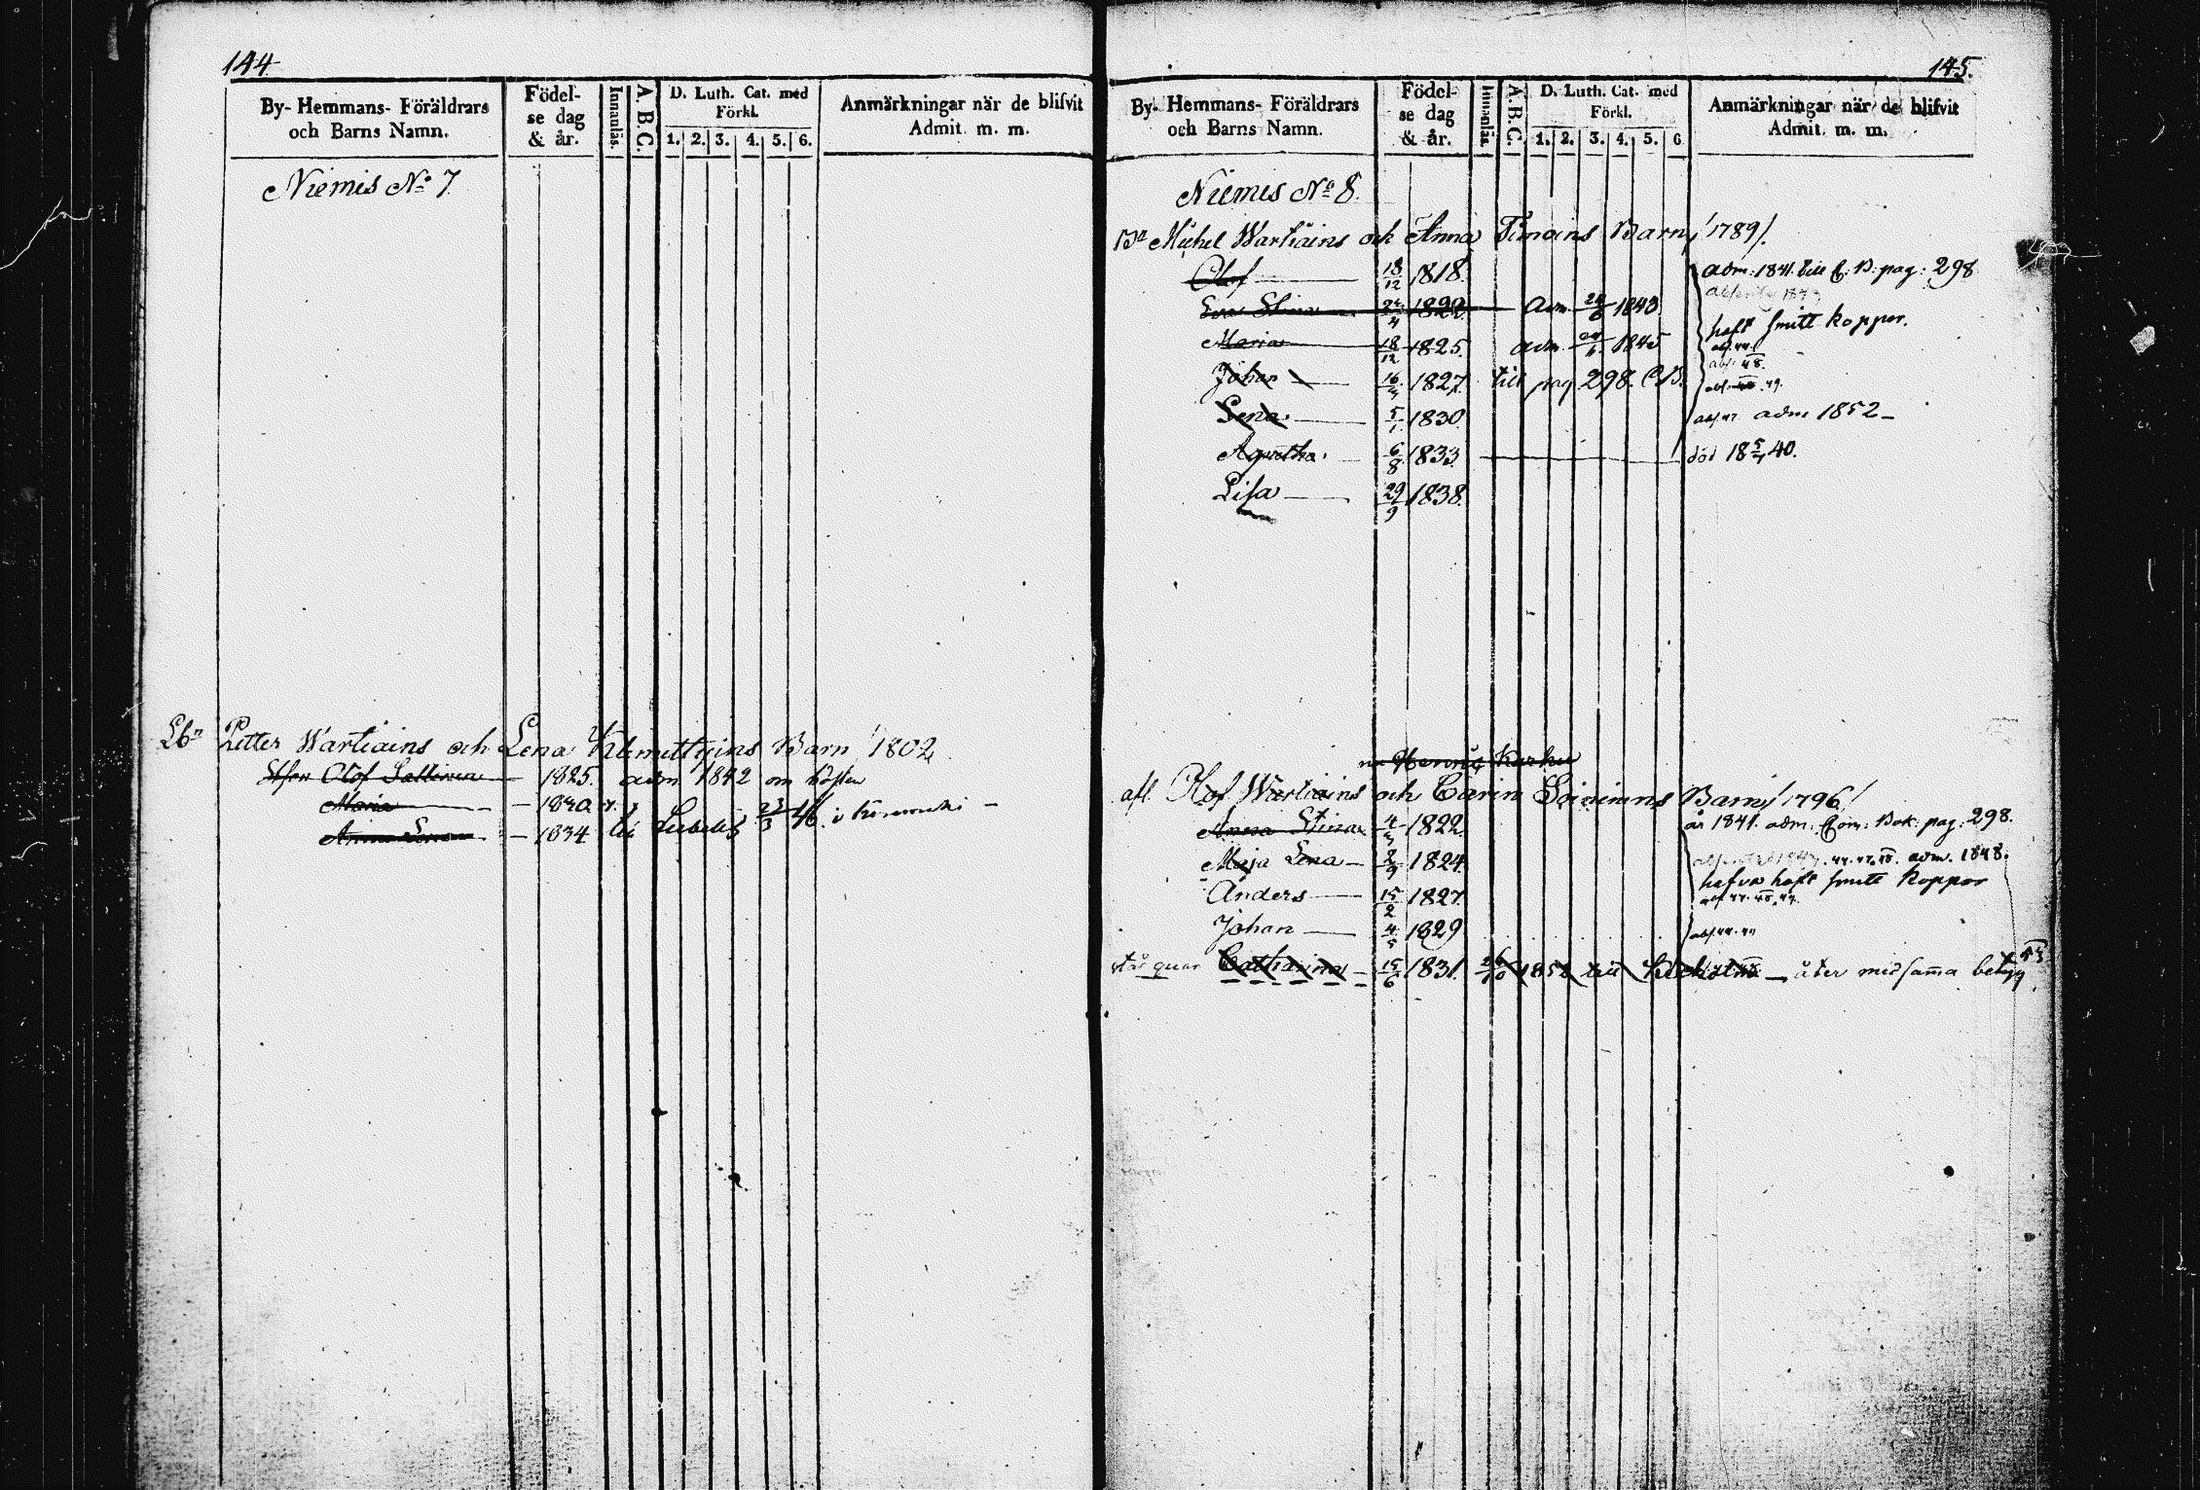 144.
By- Hemmans- Föräldrars och Barns Namn.
Födel- se dag & år.
Innanläs.
A. B. C.
D. Luth. Cat. med Förkl.
1. 2. 3. 4. 5. 6.
Anmärkningar när de blifvit Admit. m. m.
Niemis No 7.
Lbn Petter Wartiains och Lena Klemettyins Barn /1802
Olof 1825. adm 1842 om hösten
Maria 1830
Anna Lena 1834 till 23/3 46. i
145.
By- Hemmans- Föräldrars och Barns Namn.
Födel- se dag & år.
Innanläs.
A. B. C.
D. Luth. Cat. med Förkl.
1. 2. 3. 4. 5. 6
Anmärkningar när de blifvit Admit. m. m.
Niemis No 8.
Bn Michel Wartiains och Anna Timoins Barn /1789/.
Olof 18/12 1818. adm: 1841. till C: B: pag: 298
Eva Stina 1822. adm 24/6 1843.
haft smitt koppor.
Maria 18/12 1825. adm 24/6 1845
Johan 1827. till pag 298. C.B.
Lena 5/1 1830. adm 1852
Agnetha 6/8 1833 död 18 5/4 40.
Lisa 29/9 1838.
nu Karhu
afl. Olof Wartiains och Carin Soininns Barn /1796/
Anna Stina 1822. år 1841. adm: Com: Bok: pag: 298.
Maja Lena 2/9 1824. adm. 1848.
hafva haft smitt koppor
Anders 15/2 1827.
Johan 4/5 1829
står quar Catharina 15/6 1831. 1852 till åter med samma betyg 53